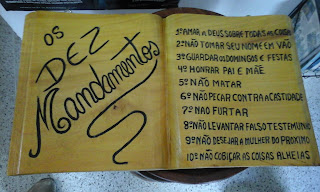 OS
DEZ
Mandamentos
1º AMAR A DEUS SOBRE TODAS AS COISAS
2º NÃO TOMAR SEU NOME EM VÃO
3º GUARDAR OS DOMINGOS E FESTAS
4º HONRAR PAI E MÃE
5º NÃO MATAR
6º NÃO PECAR CONTRA A CASTIDADE
7º NÃO FURTAR
8º NÃO LEVANTAR FALSO TESTEMUNHO
9º NÃO DESEJAR A MULHER DO PROXIMO
10º NÃO COBIÇAR AS COISAS ALHEIAS